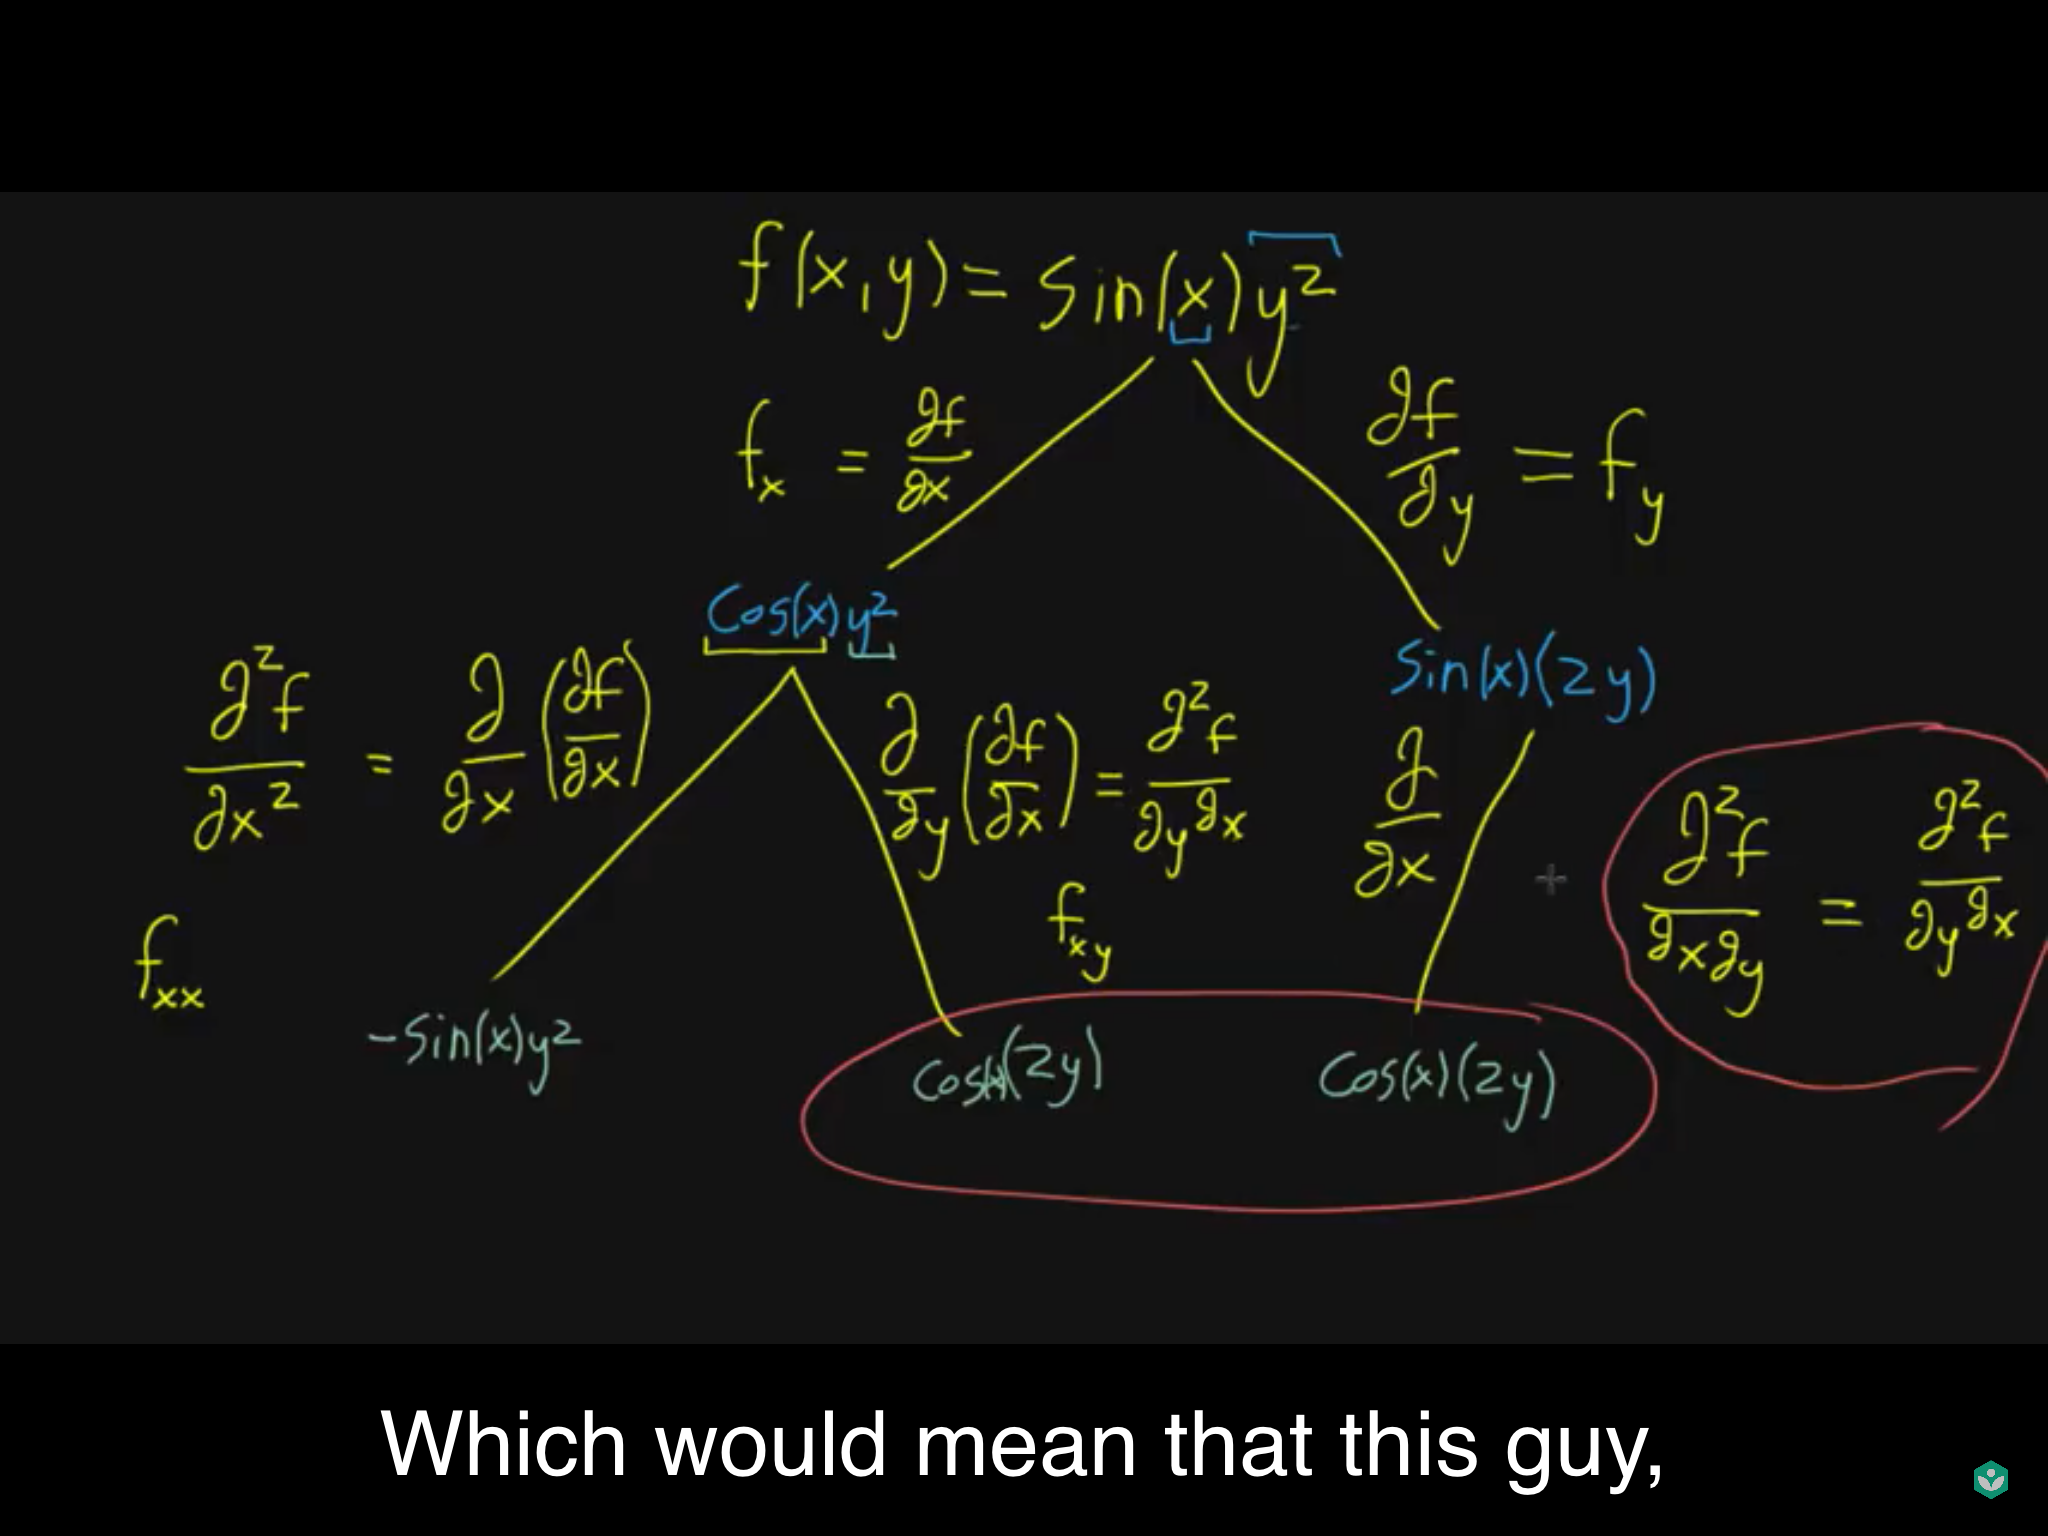 f(x,y) = Sin(x) y²
f_x = ∂f/∂x
∂f/∂y = f_y
Cos(x) y²
Sin(x)(2y)
∂²f/∂x² = ∂/∂x (∂f/∂x)
∂/∂y (∂f/∂x) = ∂²f/∂y∂x
∂/∂x
∂²f/∂x∂y = ∂²f/∂y∂x
f_xx
f_xy
-Sin(x)y²
Cos(x)(2y)
Cos(x)(2y)
Which would mean that this guy,